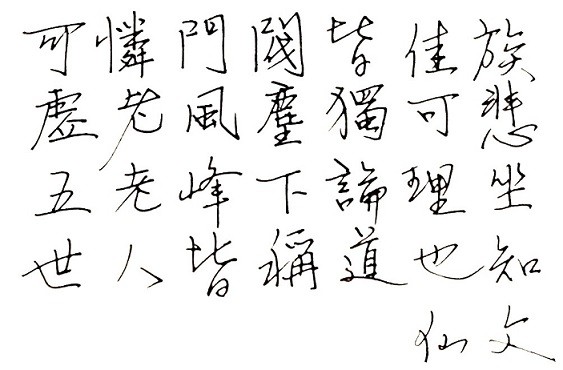 可憐門閥皆佳族
虛老風塵獨可悲
五老峰下論理坐
世人皆稱道也知
仙文